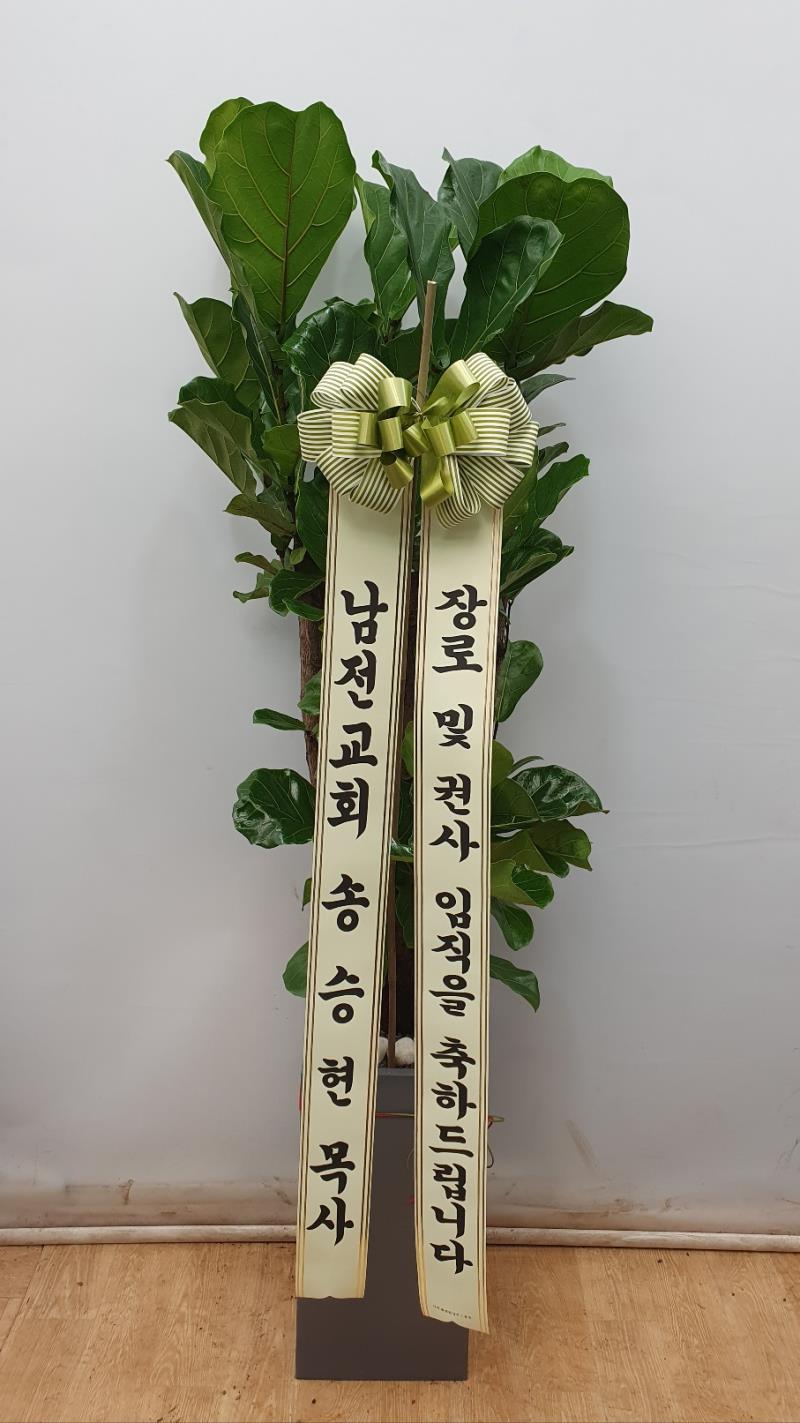 남전교회 송승현 목사
장로 및 권사 임직을 축하드립니다